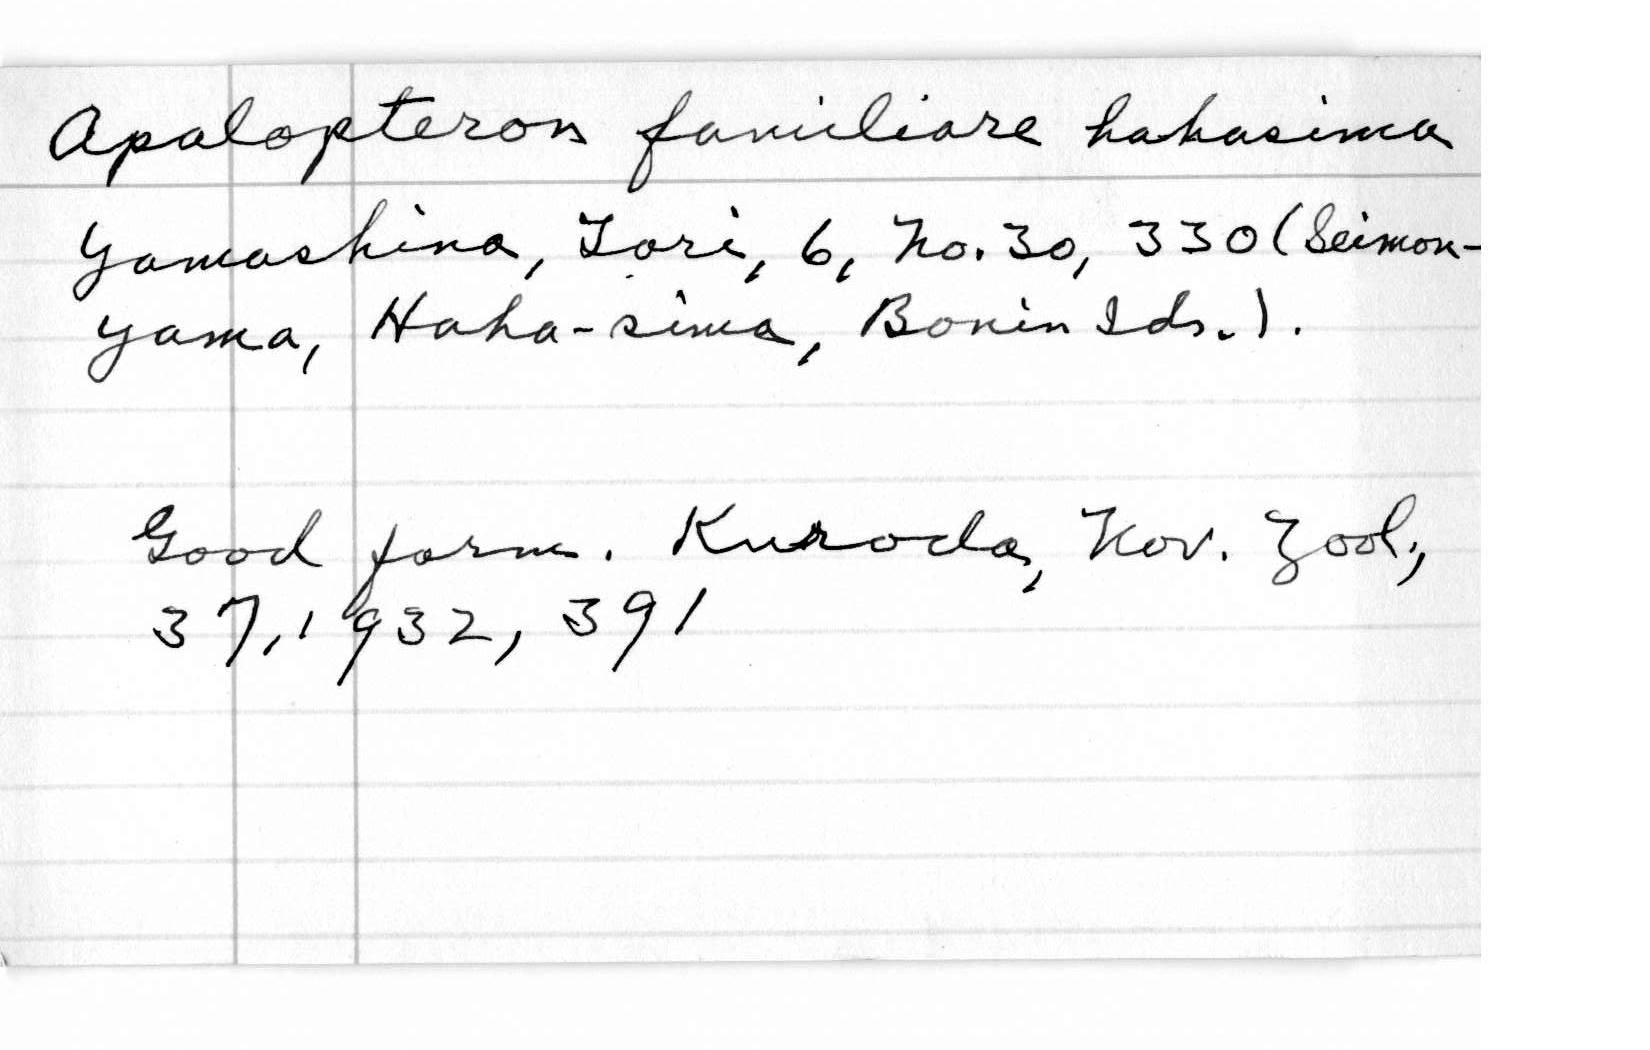 Apalopteron familiare hahasima
Yamashina, Tori, 6, No. 30, 330 (Seimon-
yama, Haha-sima, Bonin Ids.).
Good form. Kuroda, Nov. Zool.,
37, 1932, 391